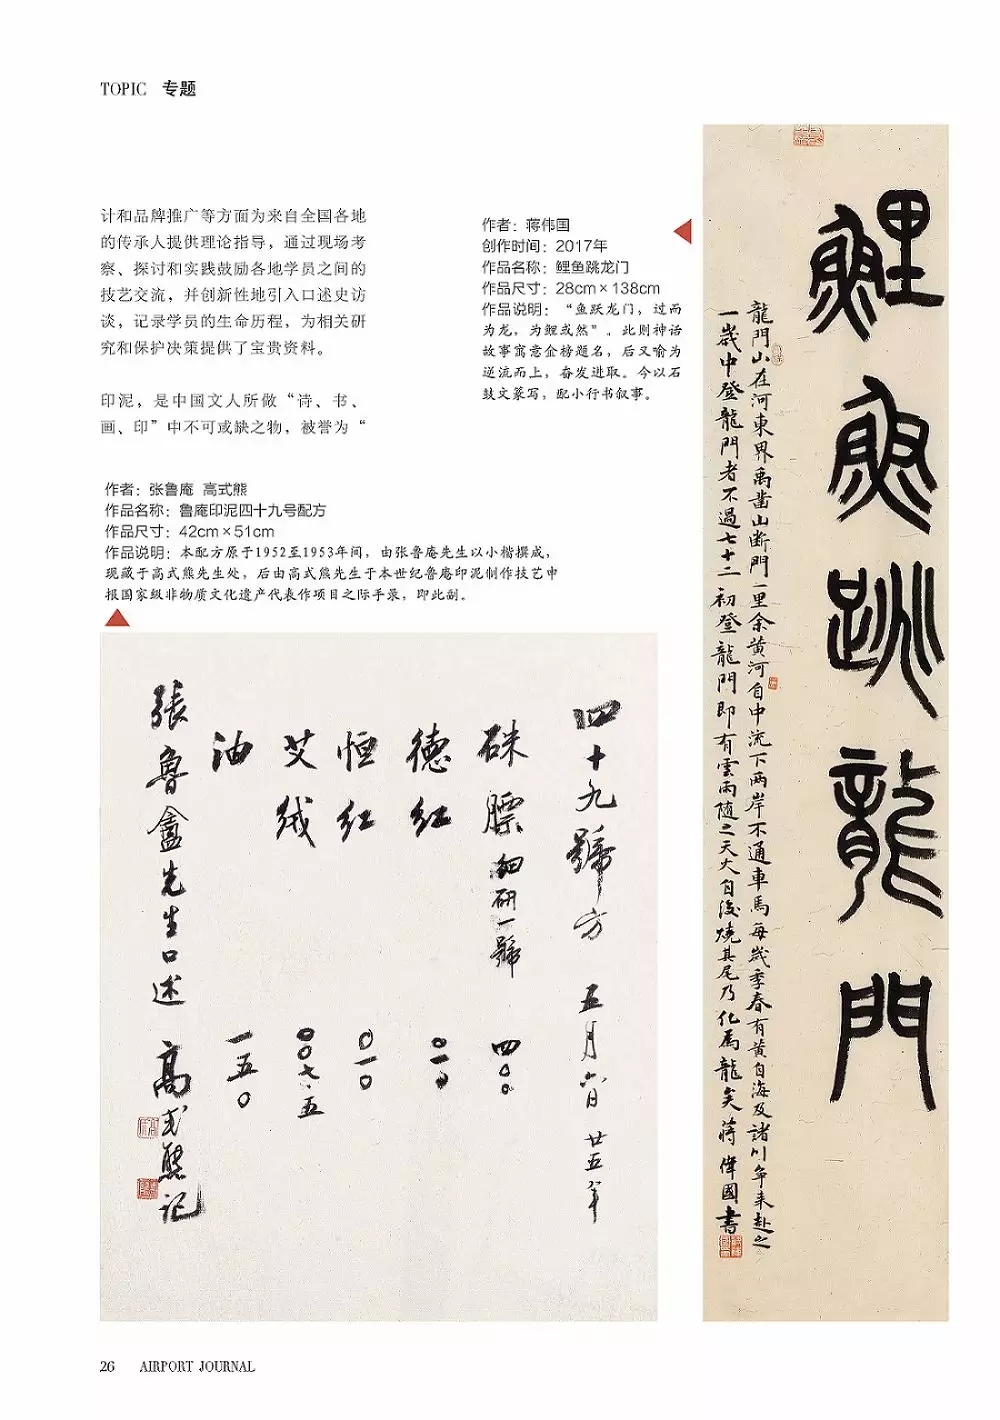 TOPIC 专题
计和品牌推广等方面为来自全国各地
的传承人提供理论指导，通过现场考
察、探讨和实践鼓励各地学员之间的
技艺交流，并创新性地引入口述史访
谈，记录学员的生命历程，为相关研
究和保护决策提供了宝贵资料。
印泥，是中国文人所做“诗、书、
画、印”中不可或缺之物，被誉为“
作者：蒋伟国
创作时间：2017年
作品名称：鲤鱼跳龙门
作品尺寸：28cm×138cm
作品说明：“鱼跃龙门，过而
为龙，为鲤或然”。此则神话
故事寓意金榜题名，后又喻为
逆流而上，奋发进取。今以石
鼓文篆写，配小行书叙事。
作者：张鲁庵 高式熊
作品名称：鲁庵印泥四十九号配方
作品尺寸：42cm×51cm
作品说明：本配方原于1952至1953年间，由张鲁庵先生以小楷撰成，
现藏于高式熊先生处，后由高式熊先生于本世纪鲁庵印泥制作技艺申
报国家级非物质文化遗产代表作项目之际手录，即此副。
鯉魚跳龍門
龍門山在河東界禹鑿山斷門一里余黄河自中流下两岸不通車馬每歲季春有黄自海及諸川争来赴之
一歲中登龍門者不過七十二初登龍門即有雲雨随之天火自後燒其尾乃化爲龍矣蒋偉國書
四十九號方 五月六日 廿五年
硃膘細研一號 四〇〇
德红 〇一〇
恒红 〇一〇
艾绒 〇〇七·五
油 一五〇
張魯盦先生口述 高式熊记
26 AIRPORT JOURNAL